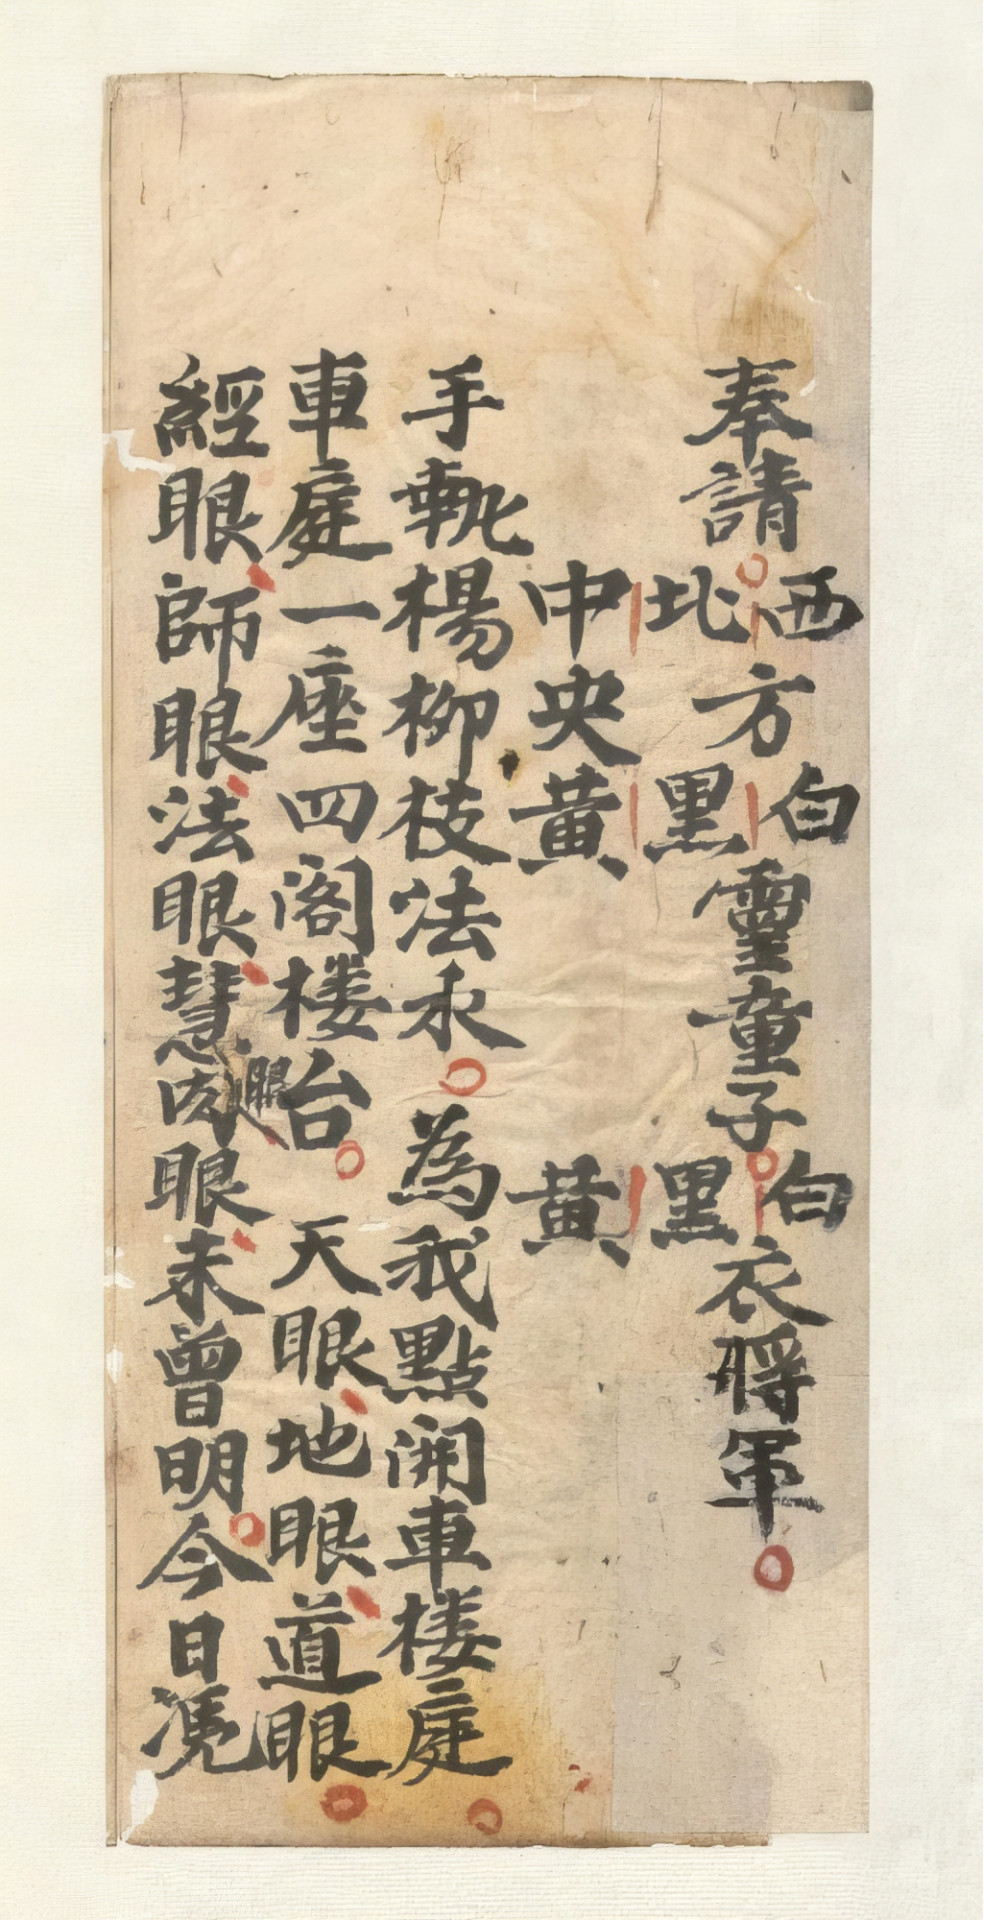 奉請西方白靈童子白衣將軍
北黑黑
中央黄黄
手執楊柳枝法水為我點開車楼庭
車庭一座四閣楼台天眼地眼道眼
經眼師眼法眼慧眼肉眼未曾明今日